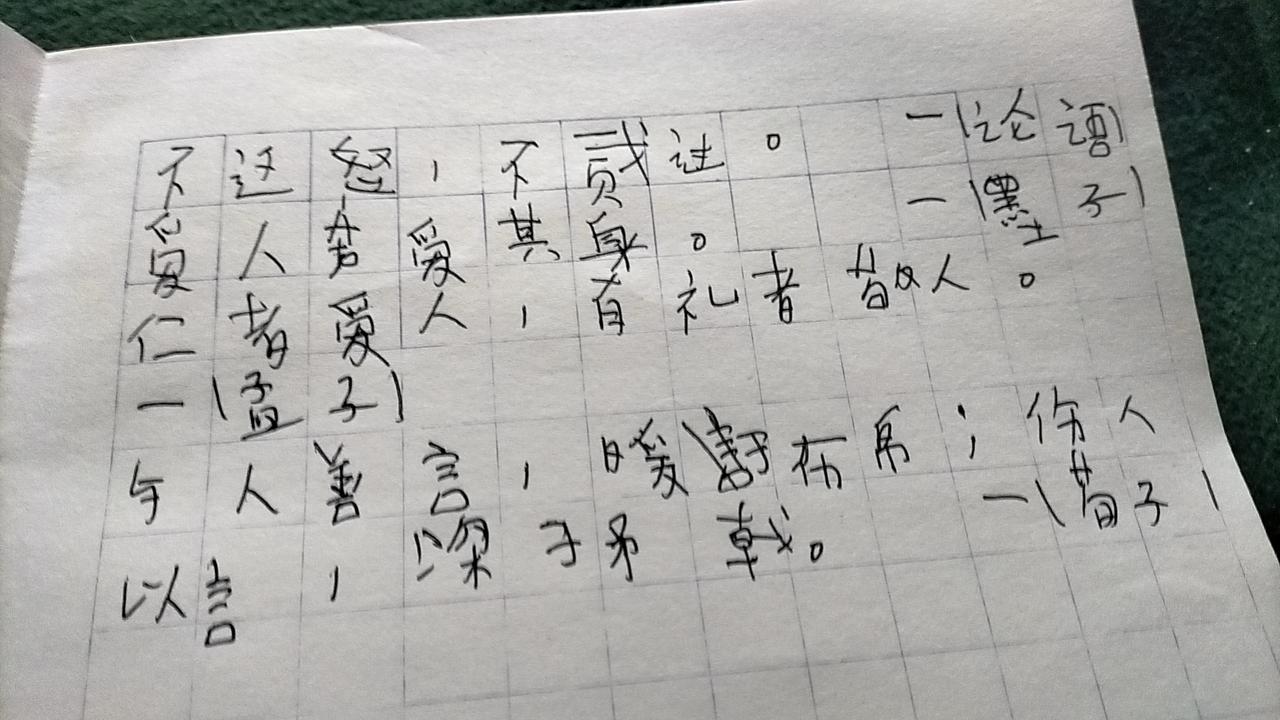 不迁怒，不贰过。 —|论语|
爱人若爱其身。 —|墨子|
仁者爱人，有礼者敬人。
—|孟子|
与人善言，暖于布帛；伤人
以言，深于矛戟。 —|荀子|